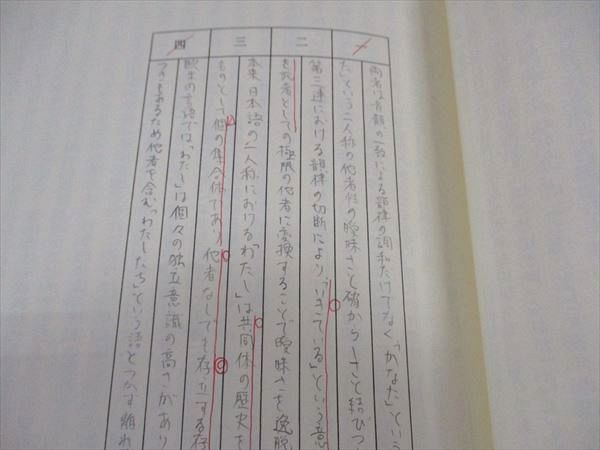 一
両者は首韻の一致による韻律の調和だけでなく「かなた」という
た」という二人称の他者性の曖昧さと確からしさと結びつ
二
第三連における韻律の切断により、「いきている」という意
を死者としての極限の他者に変換することで曖昧さを逸脱
三
本来日本語の一人称における「わたし」は共同体の歴史を
ものとして個の集合体であり他者なしでも存在する存
四
欧米の言語では「わたし」は個々の独立意識の高さがあり
つきもあるため他者を含む「わたしたち」という語とつかず離れ